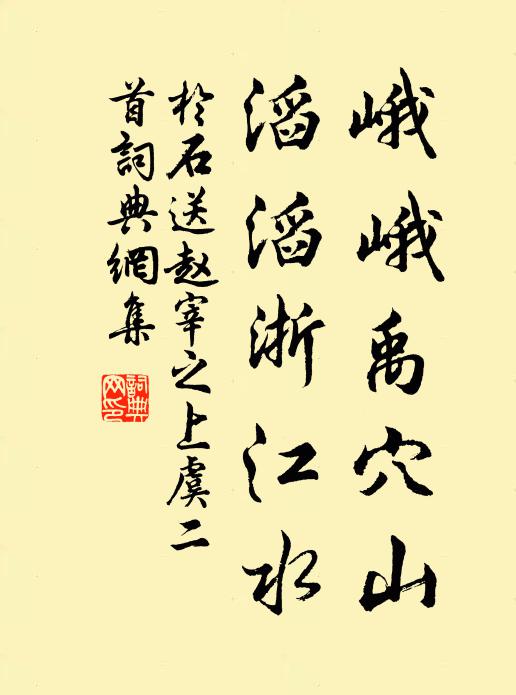 峨峨禹穴山
滔滔浙江水
於石送赵宰之上虞二
首詞典網集
詞典
网印